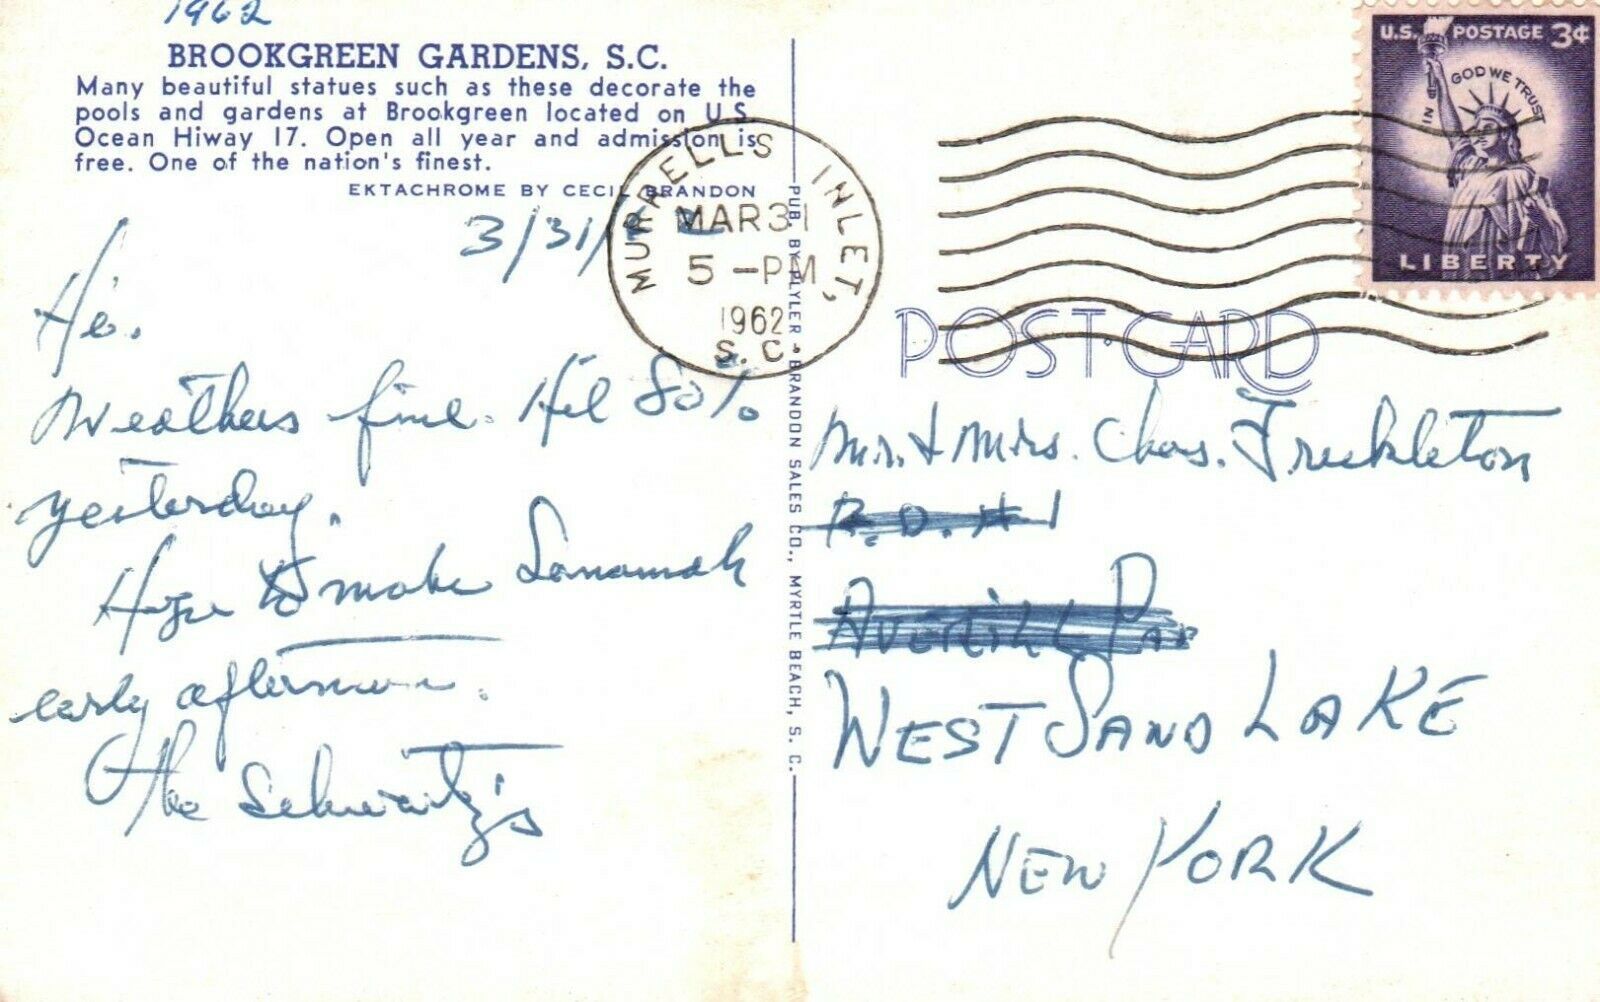 1962
BROOKGREEN GARDENS, S.C.
Many beautiful statues such as these decorate the
pools and gardens at Brookgreen located on U.S.
Ocean Hiway 17. Open all year and admission is
free. One of the nation's finest.
EKTACHROME BY CECIL BRANDON
3/31/
Hi.
Weathers fine. Hit 80%
yesterday.
Hope to make Savannah
early afternoon.
The Schwartz's
MURRELLS INLET,
MAR 31
5 -PM
1962
S. C.
PUB. BY PLYLER - BRANDON SALES CO., MYRTLE BEACH, S. C.
U.S. POSTAGE 3¢
IN GOD WE TRUST
LIBERTY
POST CARD
Mr. & Mrs. Chas. Freckleton
R. D. # 1
Averill
WEST SAND LAKE
NEW YORK